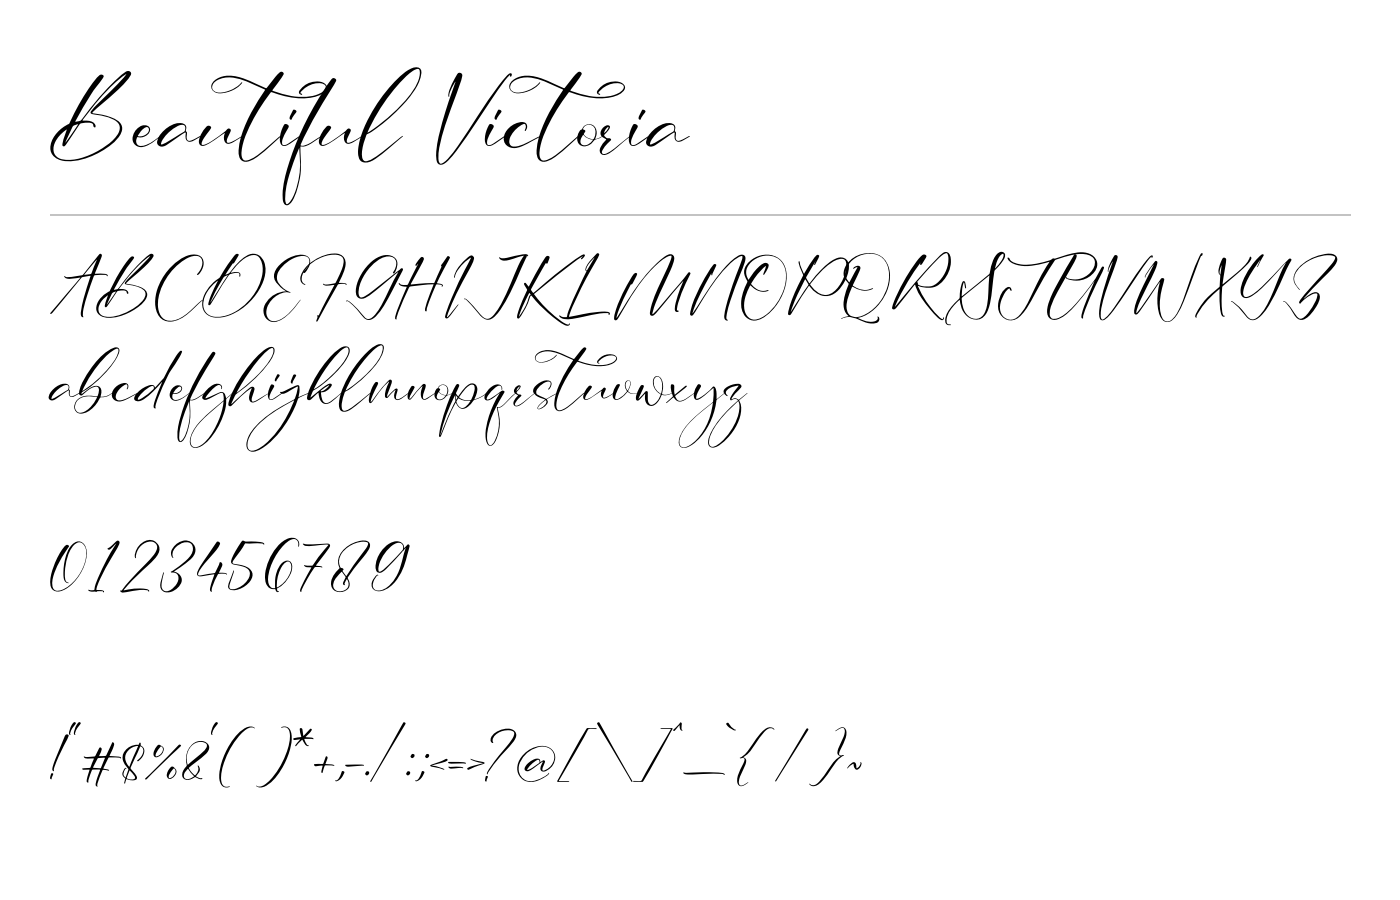 Beautiful Victoria
ABCDEFGHIJKLMNOPQRSTUVWXYZ
abcdefghijklmnopqrstuvwxyz
0123456789
!"#$%&'()*+,-./:;<=>?@[\]^_`{|}~